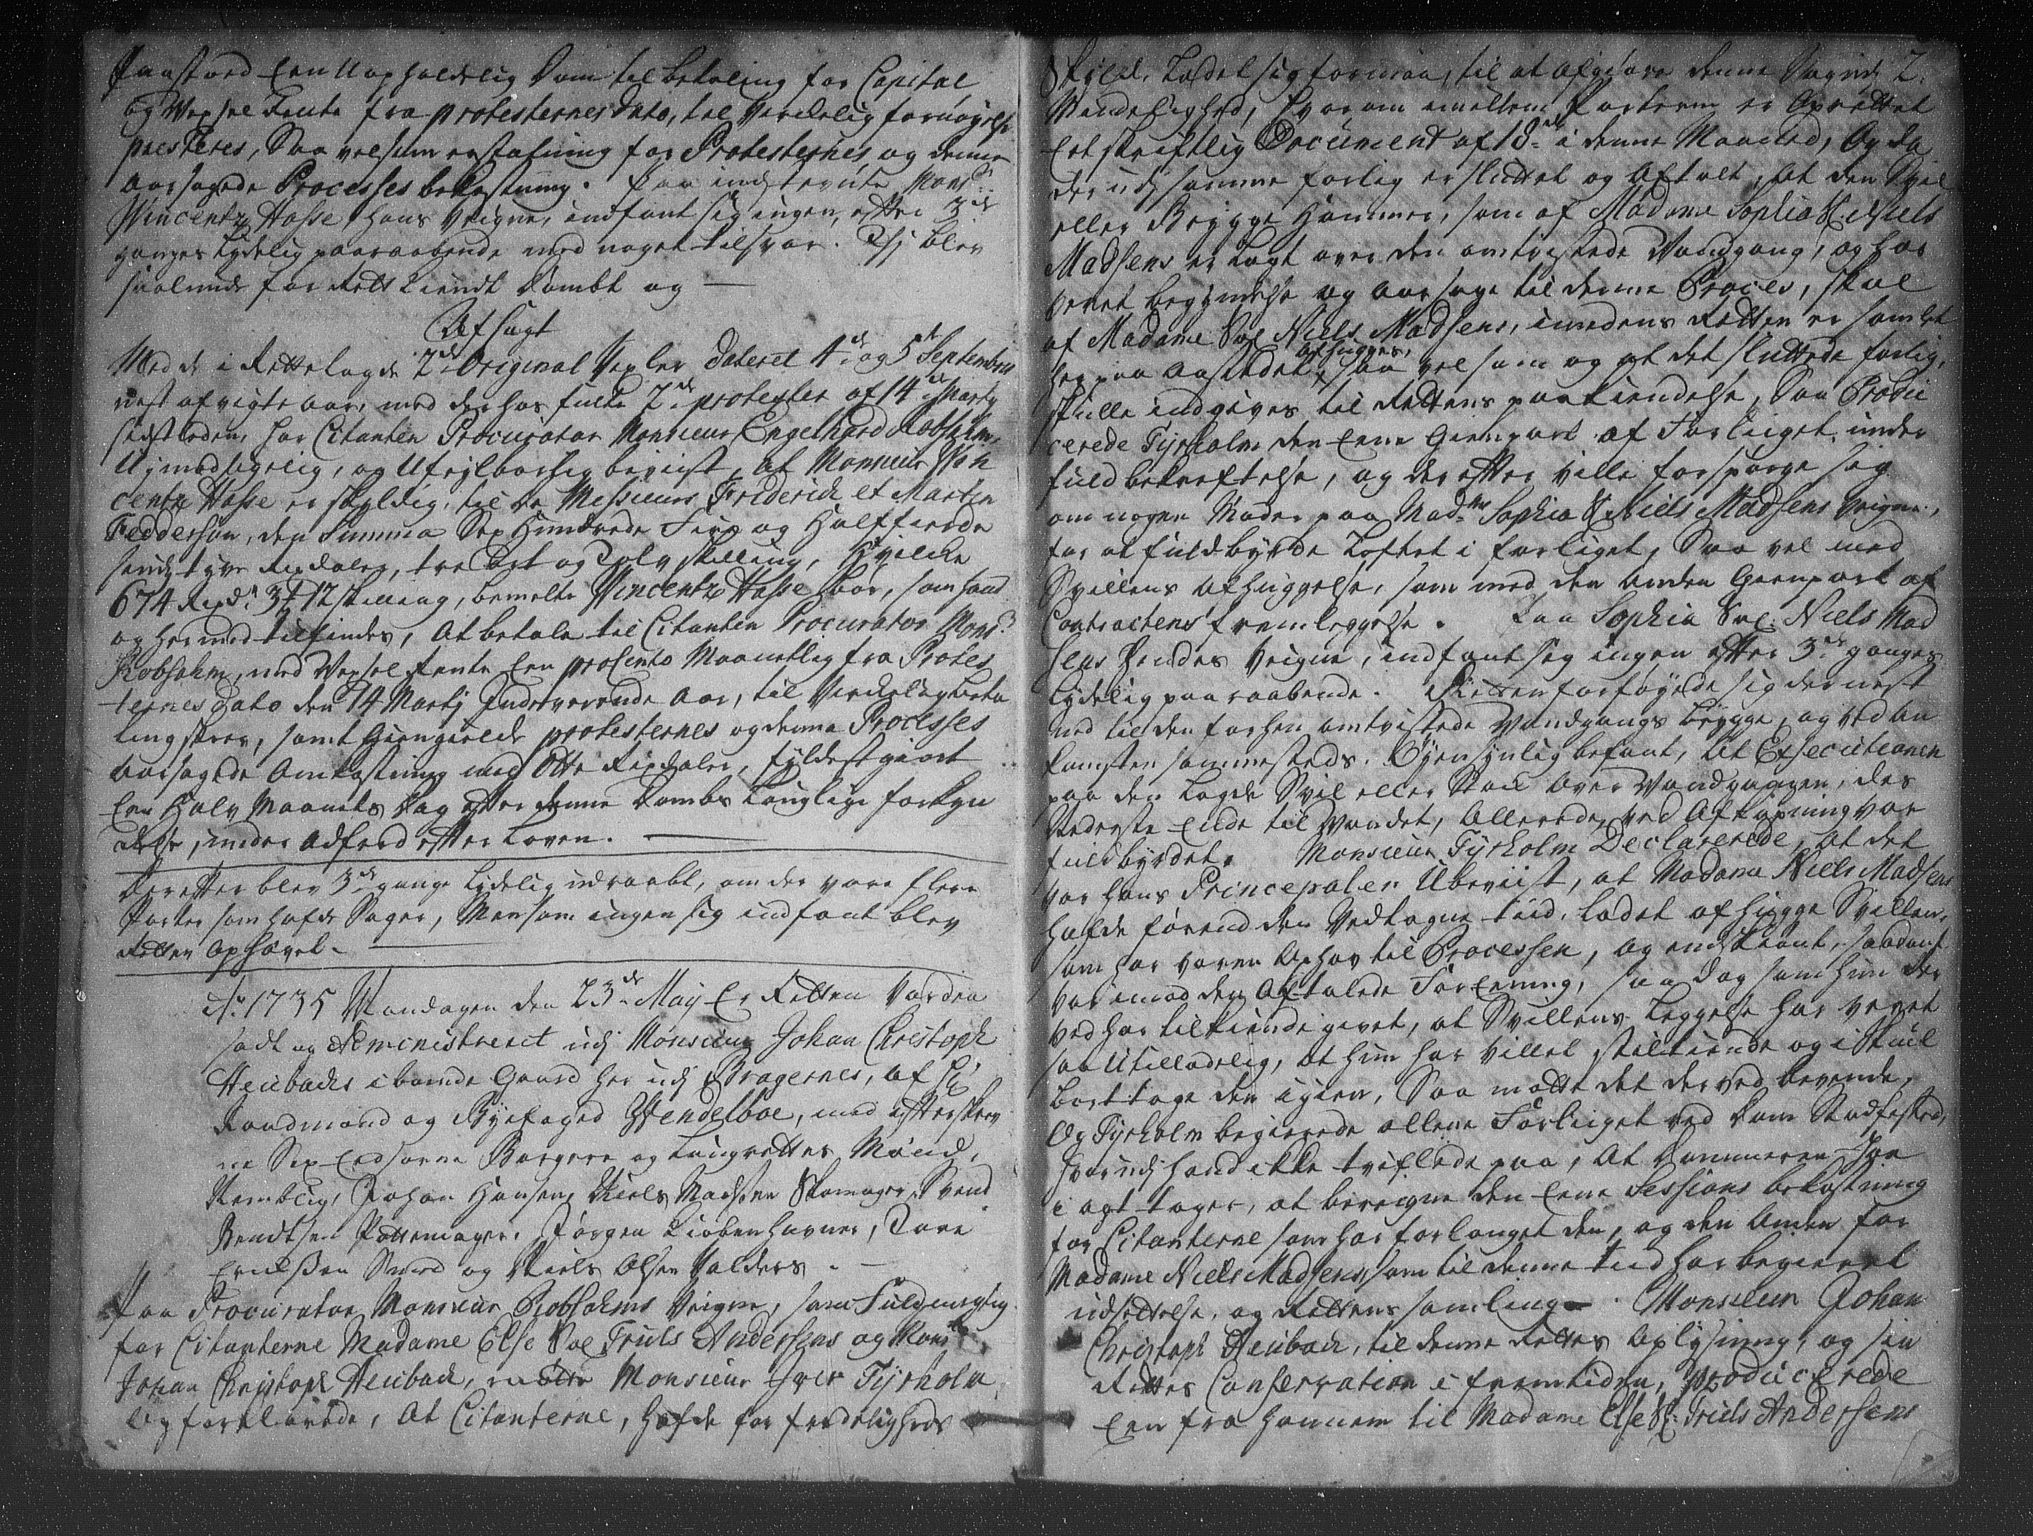 Paastoed Een Uopholdelig Dom til betaling for Capital
og Vexsel Rente fra protesternes dato, til Verkelig fornøyelse
præsteres, Saa velsom erstatning for Protesternes og denne
aarsagede Processes bekostning. Paa indstevnte Mons.r
Wincentz Hasse, hans Veigne, indfant sig ingen, efter 3de
ganges lydelig paaraabende med noget tilsvar. Thj blev
saaledes for Rett kiendt Dømbt og —
Afsagt
Med de i Rettelagde 2de Original Vexler dateret 4de og 5te Septembris
nest afvigte aar, med der hos fulte 2de protester af 14de Marty
sidstleden, har Citanten Procurator Monsieur Engelhard Robsahm,
Uimodsigelig, og Ufeylbarlig beviist, at Monsieur Win
centz Hasse er skyldig til de Messieurs Friderich et Martin
Feddersen, den Summa Sex Hundrede Fire og Halffierde
sindstyve Rixdaler, tre Ort og Tolv skilling, Hvilcke
674 Rixdr 3 ort 12 skilling, bemelte Wincentz Hasse bør, som hand
og hermed tilfindes, At betale til Citanten Procurator Mons.r
Robsahm, med Vexsel Rente Een proCento Maanetlig fra Protes
ternes Dato den 14 Martij Inderverende Aar, til Virkelig beta
ling skeer, samt Giengielde protesternes og denne Processes
aarsagede Omkostning med Otte Rixdaler, fyldestgiort
Een Halv Maaneds Dag efter denne Dombs Lauglige forkyn
delse, under Adferd efter Loven. —
Derefter blev 3de gange Lydelig udraabt, om der vare fleere
Parter som hafde Sager, Men som ingen sig indfant blev
Retten Ophævet. —
Ao. 1735 Mandagen den 23de May Er Retten Vorden
sadt og Administreret udj Monsieur Johan Christoph
Heubachs iboende Gaard her udj Bragernes, af
Raadmand og Byefoged Wendelboe, med efterskrev
ne Sex Eedsorne Borgere og Laugrettes Mænd,
Nemblig, Johan Hansen, Niels Madsen Skomager, Svend
Bendtsen Pottemager, Jørgen Kiøbenhavner, Tore
Erichssen Smed og Niels Olsen Halders. —
Paa Procurator Monsieur Robsahms Veigne, som Fuldmegtig
for Citanterne Madame Else Sal Truls Andersens og Mons.r
Johan Christoph Heubach, mødte Monsieur Iver Tyrholm
og forklarede, At Citanterne, hafde for fredeligheds
2.
Skyld, Ladet sig formaa, til at afgiøre denne Sag udj
Mindelighed, hvorom imellem Parterne er Oprettet
Eet skriftlig Document af 18de i denne Maaned, Og da
der udj samme forlig er sluttet og aftalt, at den Svil
eller Brygge Hammer, som af Madame Sophia Sl. Niels
Madsens er Lagt over den omtvistede Vandgang, og har
veret begyndelse og aarsage til denne Proces, skal
af Madame Sal Niels Madsens, imedens Retten er samlet
her paa Aastedet afhugges, saa vel som og at det sluttede forlig,
skulle indgives til Rettens paakiendelse, Saa Produ
cerede Tyrholm den Eene Gienpart af Forliiget, under
fuldbekreftelse, og derefter ville forspørge sig
om nogen Møder paa Mad.me Sophia Sl Niels Madsens Veigne,
for at fuldbyrde Løftet i forliget, Saa vel med
Svillens afhuggelse, som med den anden Gienpart af
Contractens fremleggelse. Paa Sophia Sal. Niels Mad
sens Hendes Veigne, indfant sig ingen efter 3de ganges
lydelig paaraabende. Retten forføyede sig dernest
ned til den forhen omtvistede Vandgangs Brygge, og ved an
komsten sammesteds. Øyensynlig befant, at Exsecutionen
paa den Lagde Svil eller Stock over Vandgangen, des
Nederste Ende til Vandet, allereede ved Afkapning var
fuldbyrdet. Monsieur Tyrholm Declarerede, at det
var hans Princepaler Ubeviist, at Madame Niels Madsens
hafde førend den Vedtagne tiid, ladet afhugge Svillen,
som har været Ophav til Processen, og endskiønt, saadant
var imod den Aftalede Foreening, saa dog som hun der
ved har tilkiende givet, at Svillens Leggelse har veret
saa Utilladelig, at hun har villet stiltiende og i skiul
borttage den igien, Saa motte det derved beroende,
Og Tyrholm begierede allene Forliiget ved Dom Stadfested,
hvorudj hand ikke tviflede paa, At Dommeren Jo
i agt tager, at beregne den Eene Sessions bekostning
for Citanterne som har forlanget den, og den Anden for
Madame Niels Madsens, som til denne tiid har begieret
udsettelse, og Rettens samling. — Monsieur Johan
Christoph Heubach, til denne Rettes Oplysning, og sin
Rettes Conservation i fremtiden, producerede
Een fra hannem til Madame Else Sl. Truls Andersens